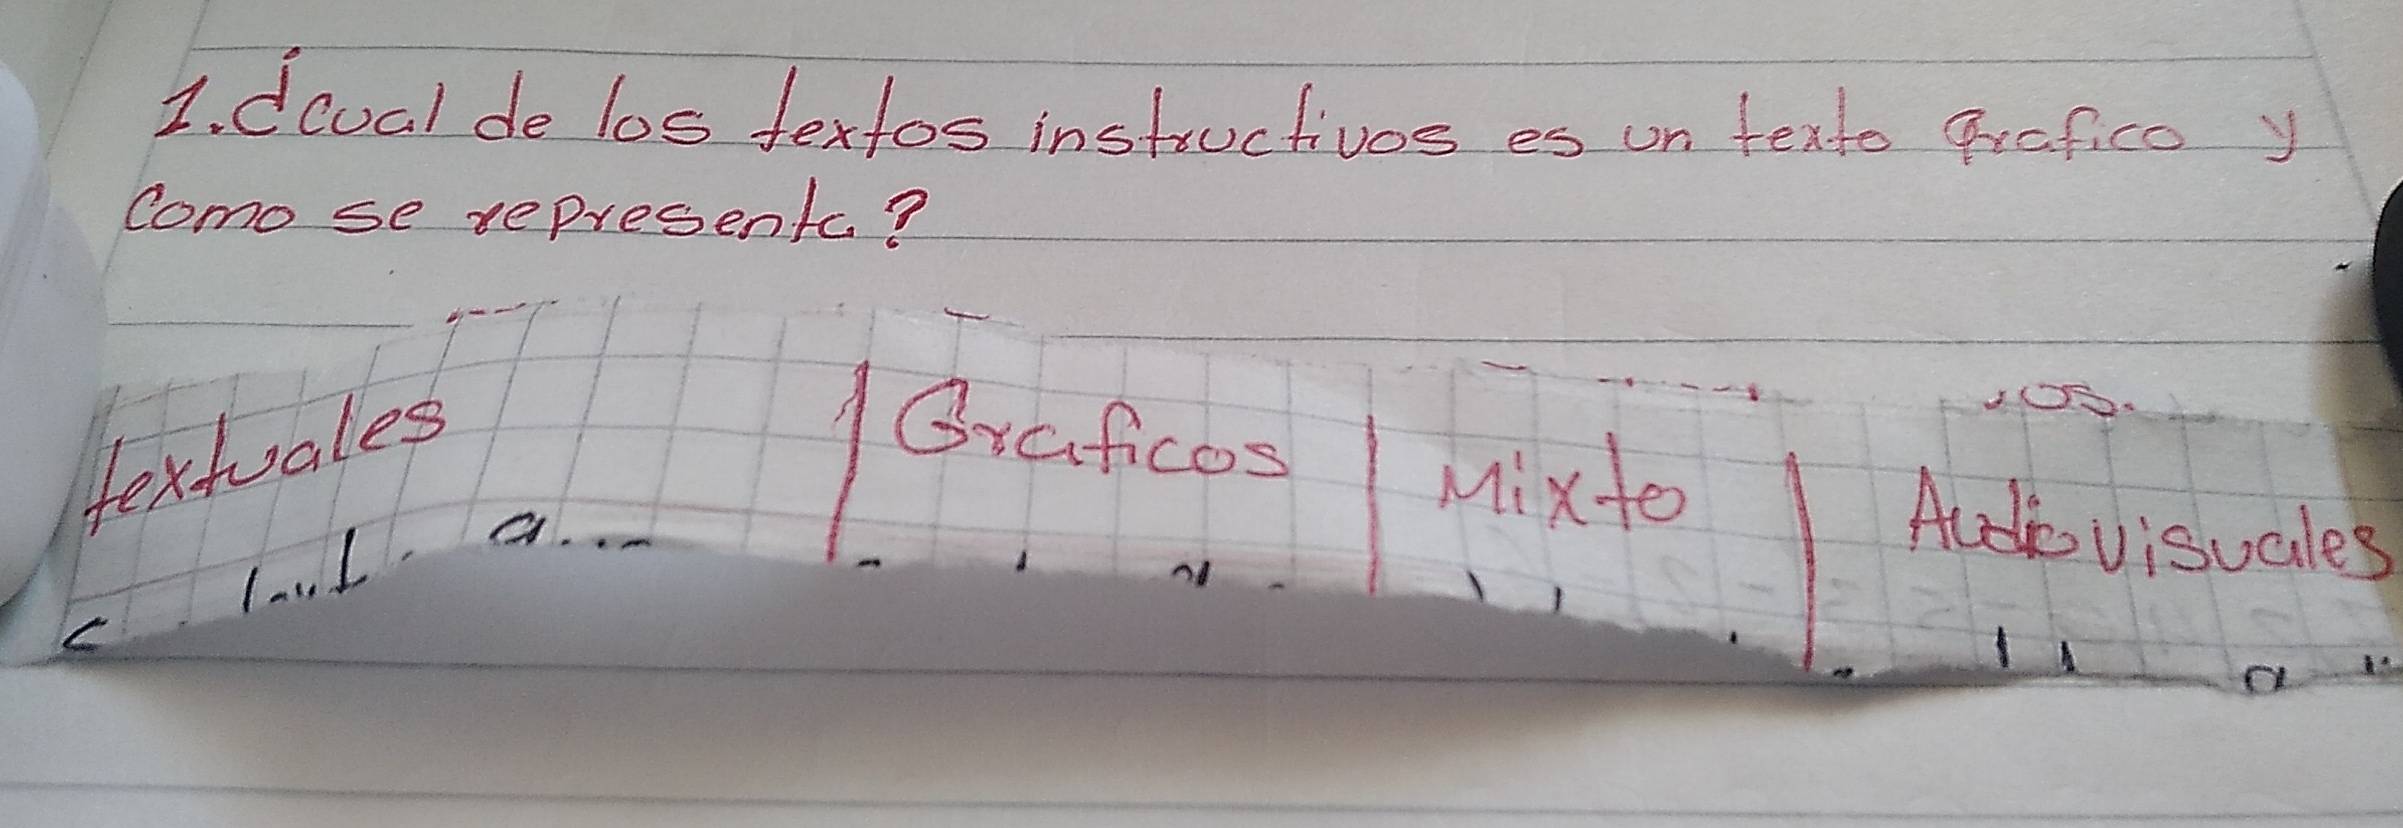 1. ¿cual de los textos instructivos es un texto grafico y
como se representa?
textuales | Graficos | Mixto | Audiovisuales